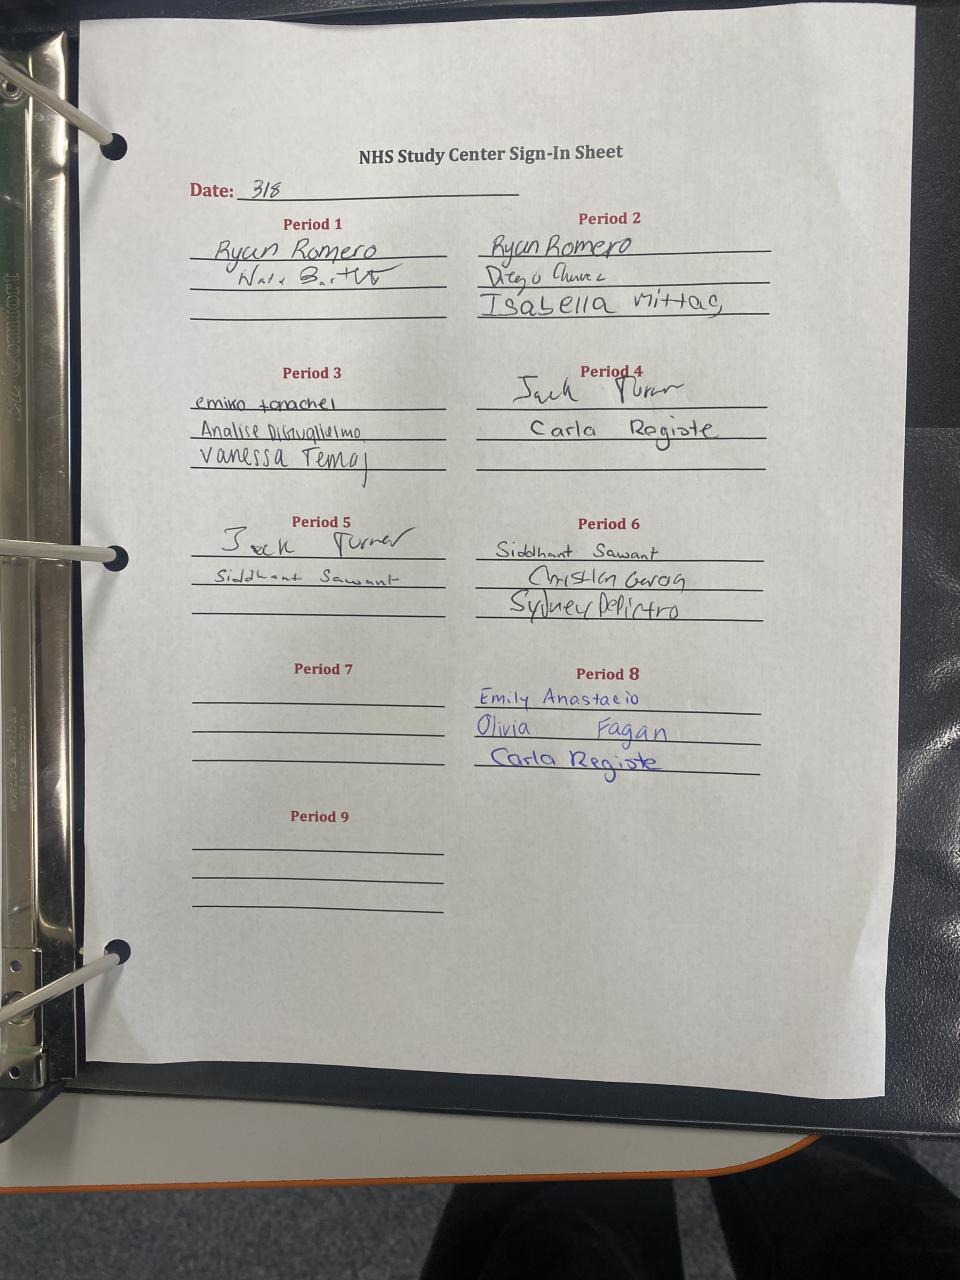 NHS Study Center Sign-In Sheet
Date: 3/8
Period 1
Ryan Romero
Period 2
Ryan Romero
Diego Chavez
Isabella Mittag
Period 3
emiko tonachel
Analise Distuglielmo
Vanessa Temaj
Period 4
Jack Turner
Carla Registe
Period 5
Jack Turner
Siddhant Sawant
Period 6
Siddhant Sawant
Christian
Sydney DePietro
Period 7
Period 8
Emily Anastasio
Olivia Fagan
Carla Registe
Period 9